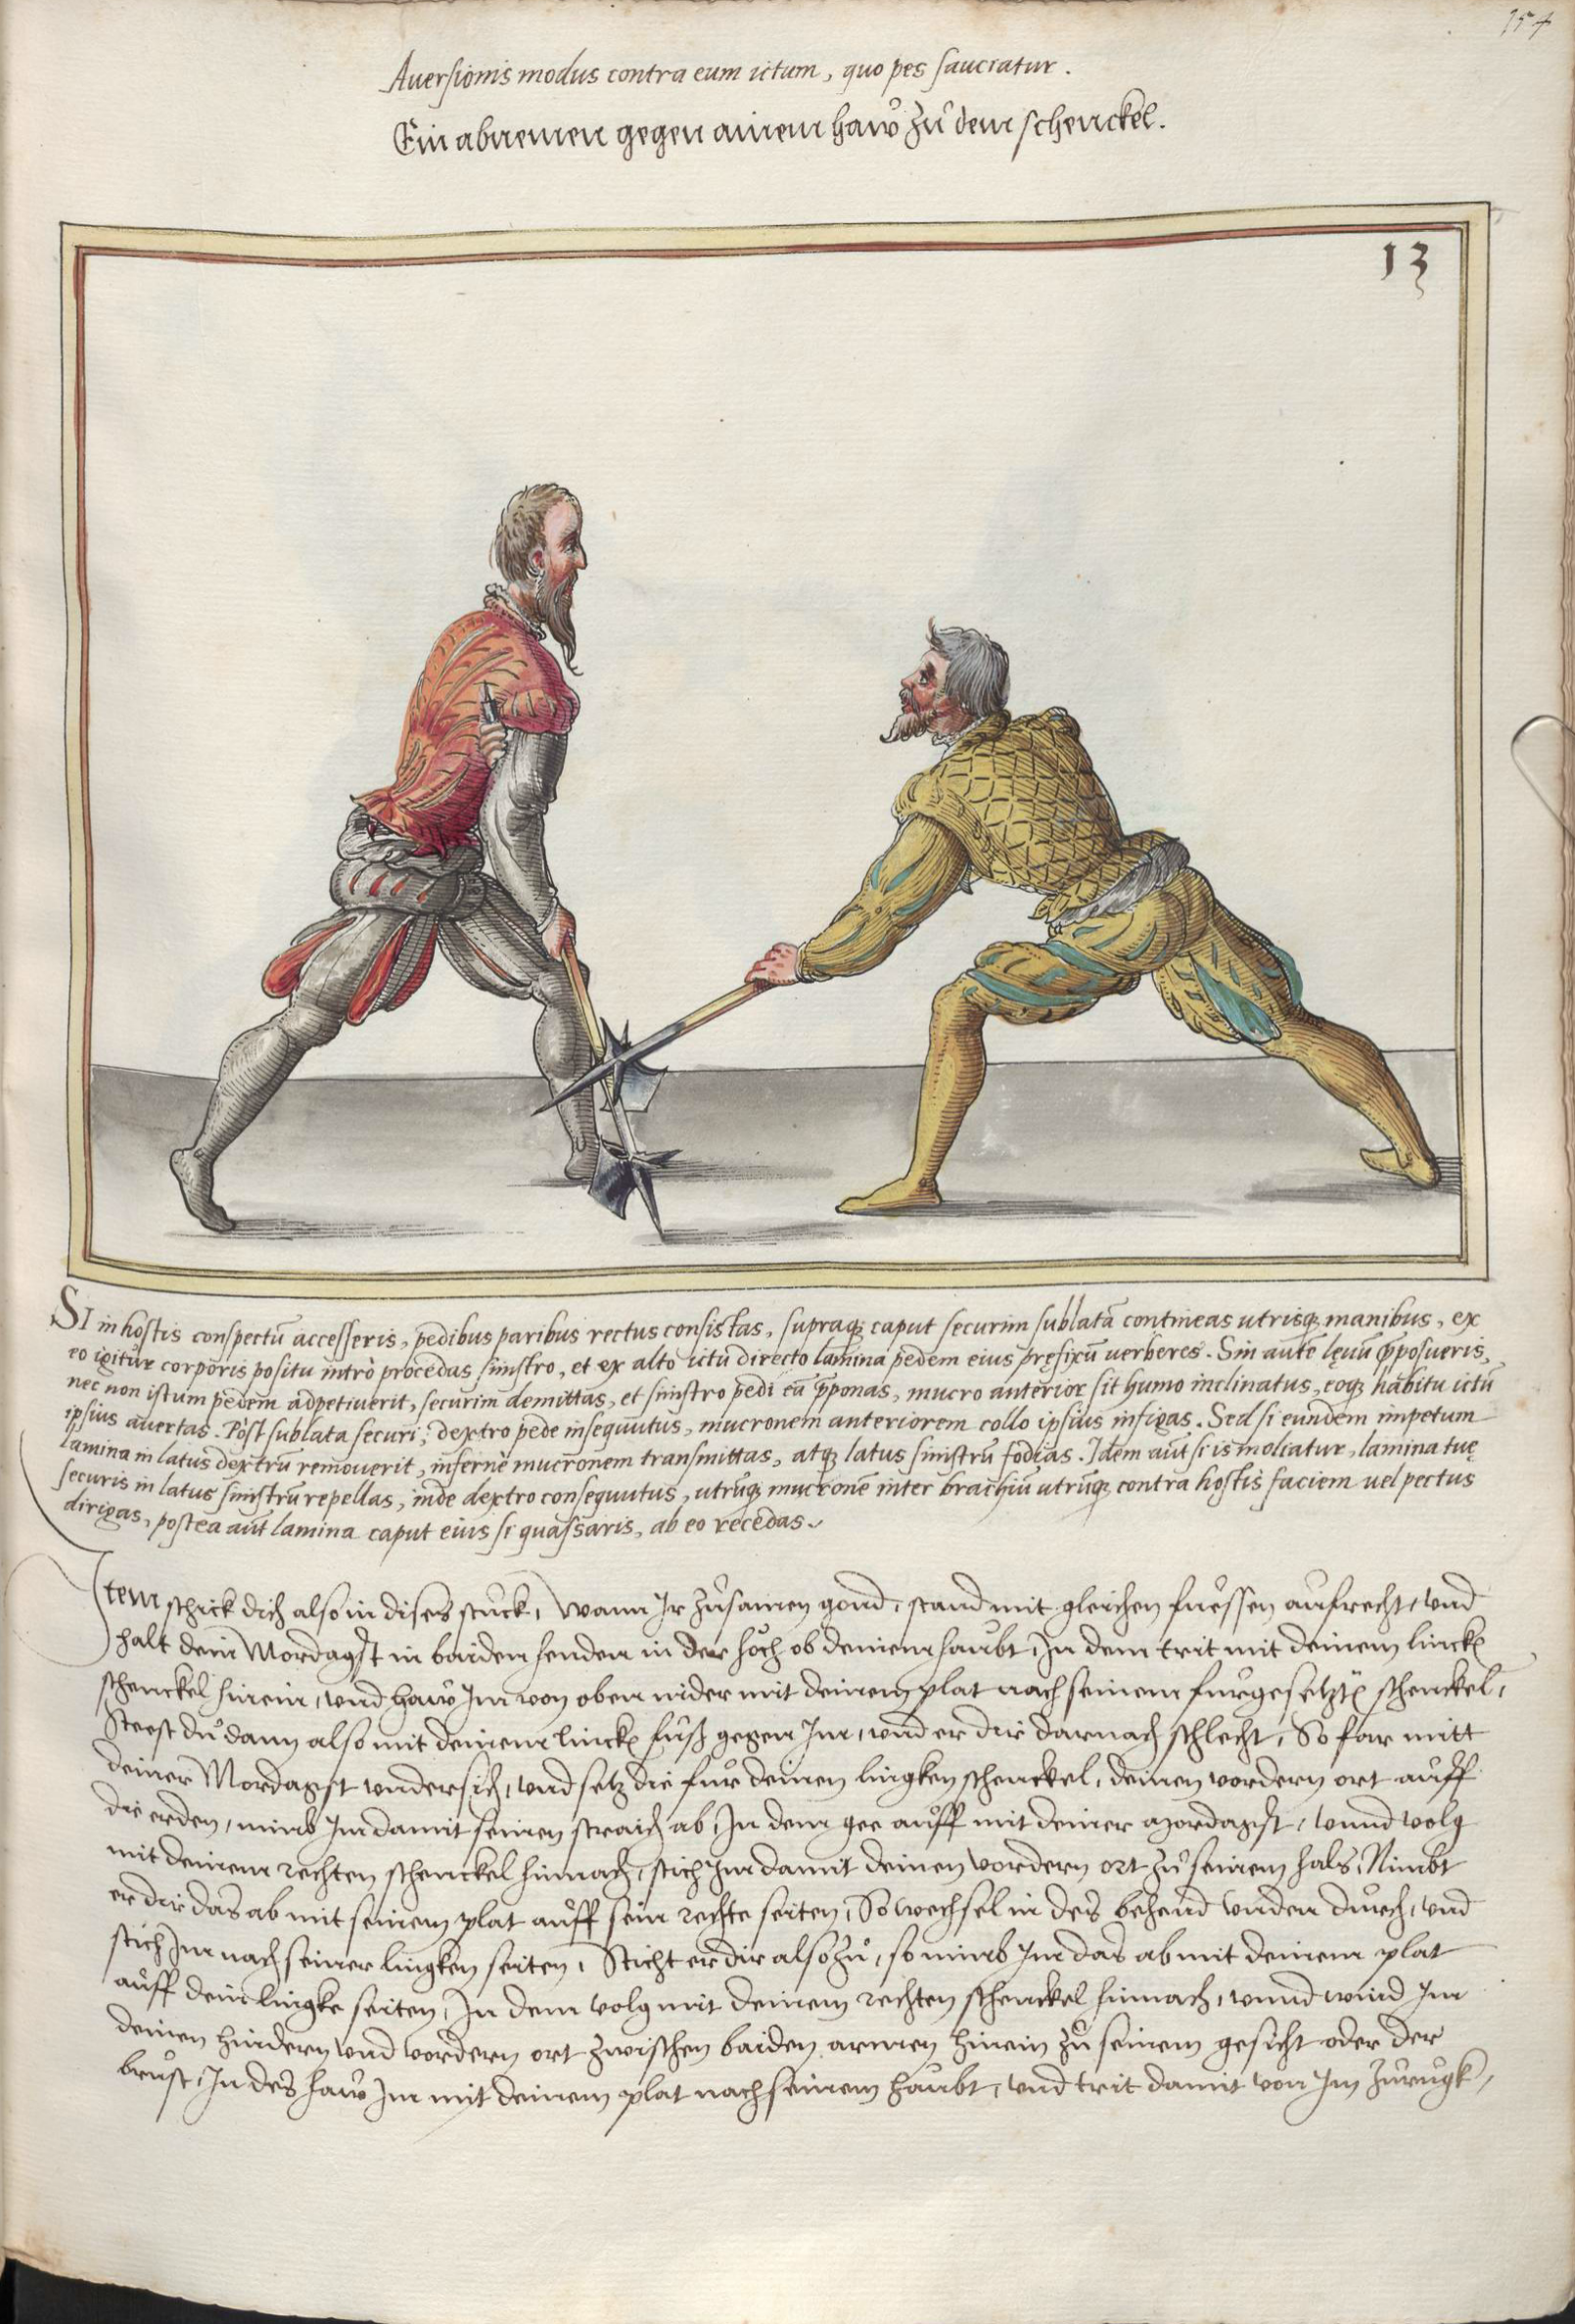 154
Auersionis modus contra eum ictum, quo pes sauciatur.
Ein abnemen gegen ainem haw zů dem schenckel.
13
SI in hostis conspectũ accesseris, pedibus paribus rectus consistas, supraq; caput securim sublatã contineas utrisq; manibus, ex
eo igitur corporis positu intrò procedas sinistro, et ex alto ictu directo lamina pedem eius pręfixũ uerberes. Sin autẽ lęuũ p̃posueris,
nec non istum pedem adpetiuerit, securim demittas, et sinistro pedi eã p̃ponas, mucro anterior sit humo inclinatus, eoq; habitu ictũ
ipsius auertas. Pòst sublata securi, dextro pede insequutus, mucronem anteriorem collo ipsius infigas. Sed si eundem impetum
lamina in latus dextrũ remouerit, infernè mucronem transmittas, atq; latus sinistrũ fodias. Idem aũt si is moliatur, lamina tuę
securis in latus sinistrũ repellas, inde dextro consequutus, utrũq; mucronẽ inter brachiũ utrũq; contra hostis faciem uel pectus
dirigas, postea aũt lamina caput eius si quassaris, ab eo recedas.
Item schick dich also in dises stuck, Wann Ir zůsamen gond, stand mit gleichen fuessen aufrecht, vnd
halt dein Mordagst in baiden henden in der höch ob deinem haubt, In dem trit mit deinem linckẽ
schenckel hinein, vnd haw Im von oben nider mit deinem plat nach seinem furgesetztẽ schenckel,
Steest du dann also mit deinem linckẽ fuß gegen Im, vnd er dir darnach schlecht, So far mitt
deiner Mordagst vndersich, vnd setz die fur deinen lingken schenckel, deinen vordern ort auff
die erden, nimb Im damit seinen straich ab, In dem gee auff mit deiner mordagst, vnnd volg
mit deinem rechten schenckel hinnach, stich Im damit deinen vordern ort zů seinem hals, Nimbt
er dir das ab mit seinem plat auff sein rechte seiten, So wechsel in des behend vnden durch, vnd
stich Im nach seiner lingken seiten, Sticht er dir also zů, so nimb Im das ab mit deinem plat
auff dein lingke seiten, In dem volg mit deinem rechten schenckel hinnach, vnnd wind Im
deinen hindern vnd vordern ort zwischen baiden armen hinein zů seinem gesicht oder der
brust, In des haw Im mit deinem plat nach seinem haubt, vnd trit damit von Im zurugk,